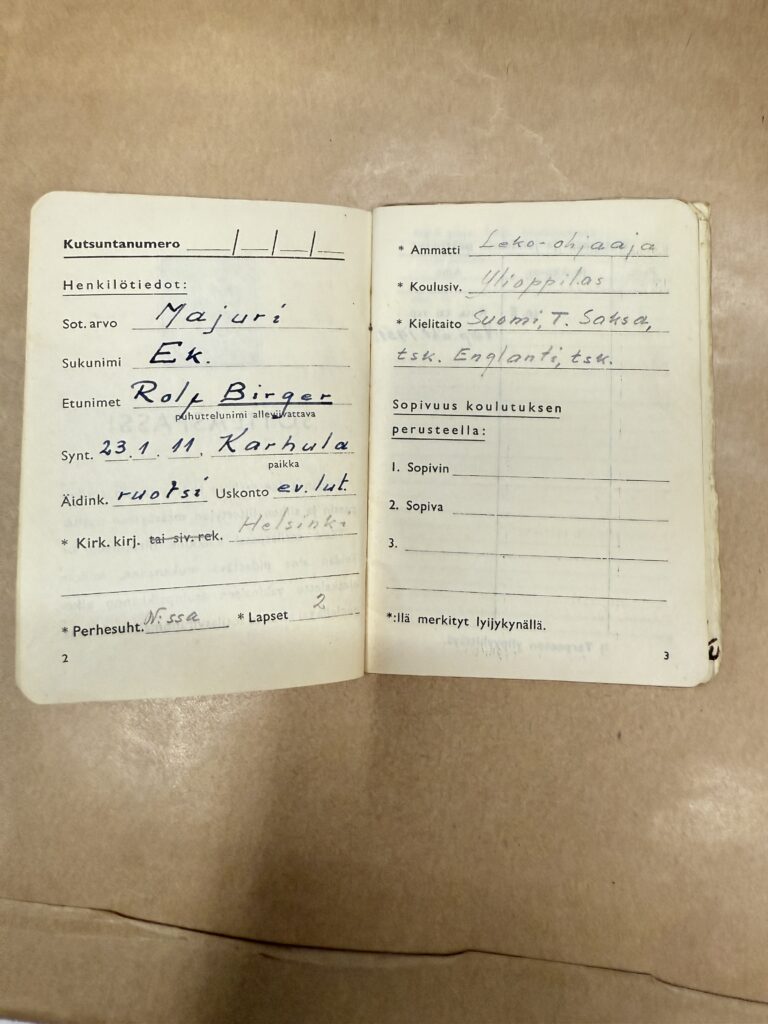 Kutsuntanumero ____/___/___/___
Henkilötiedot:
Sot. arvo Majuri
Sukunimi Ek.
Etunimet Rolf Birger
puhuttelunimi alleviivattava
Synt. 23.1.11. Karhula
paikka
Äidink. ruotsi Uskonto ev.lut.
* Kirk. kirj. tai siv. rek. Helsinki
* Perhesuht. N:ssa * Lapset 2
2
* Ammatti Leko-ohjaaja
* Koulusiv. Ylioppilas
* Kielitaito Suomi, T. Saksa,
tsk. Englanti, tsk.
Sopivuus koulutuksen
perusteella:
1. Sopivin
2. Sopiva
3.
*:llä merkityt lyijykynällä.
3